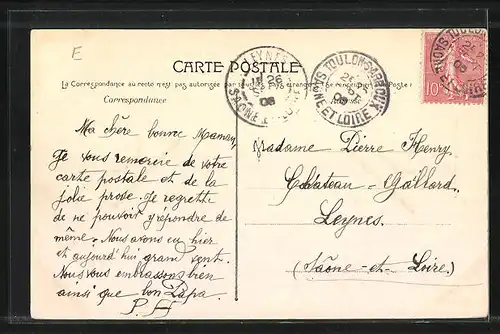 E
CARTE POSTALE
La Correspondance au recto n'est pas autorisée par
Correspondance
Ma chère bonne Maman,
Je vous remercie de votre
carte postale et de la
jolie prose. Je regrette
de ne pouvoir y répondre de
même. Nous avons eu hier
et aujourd'hui grand vent.
Nous vous embrassons bien
ainsi que bon Papa.
P. H
LEYNES
26
08
SAÔNE
TOULON S ARROUX
08
SAÔNE ET LOIRE
10
Madame Pierre Henry,
Château-Gaillard,
Leynes.
(Saône-et-Loire.)